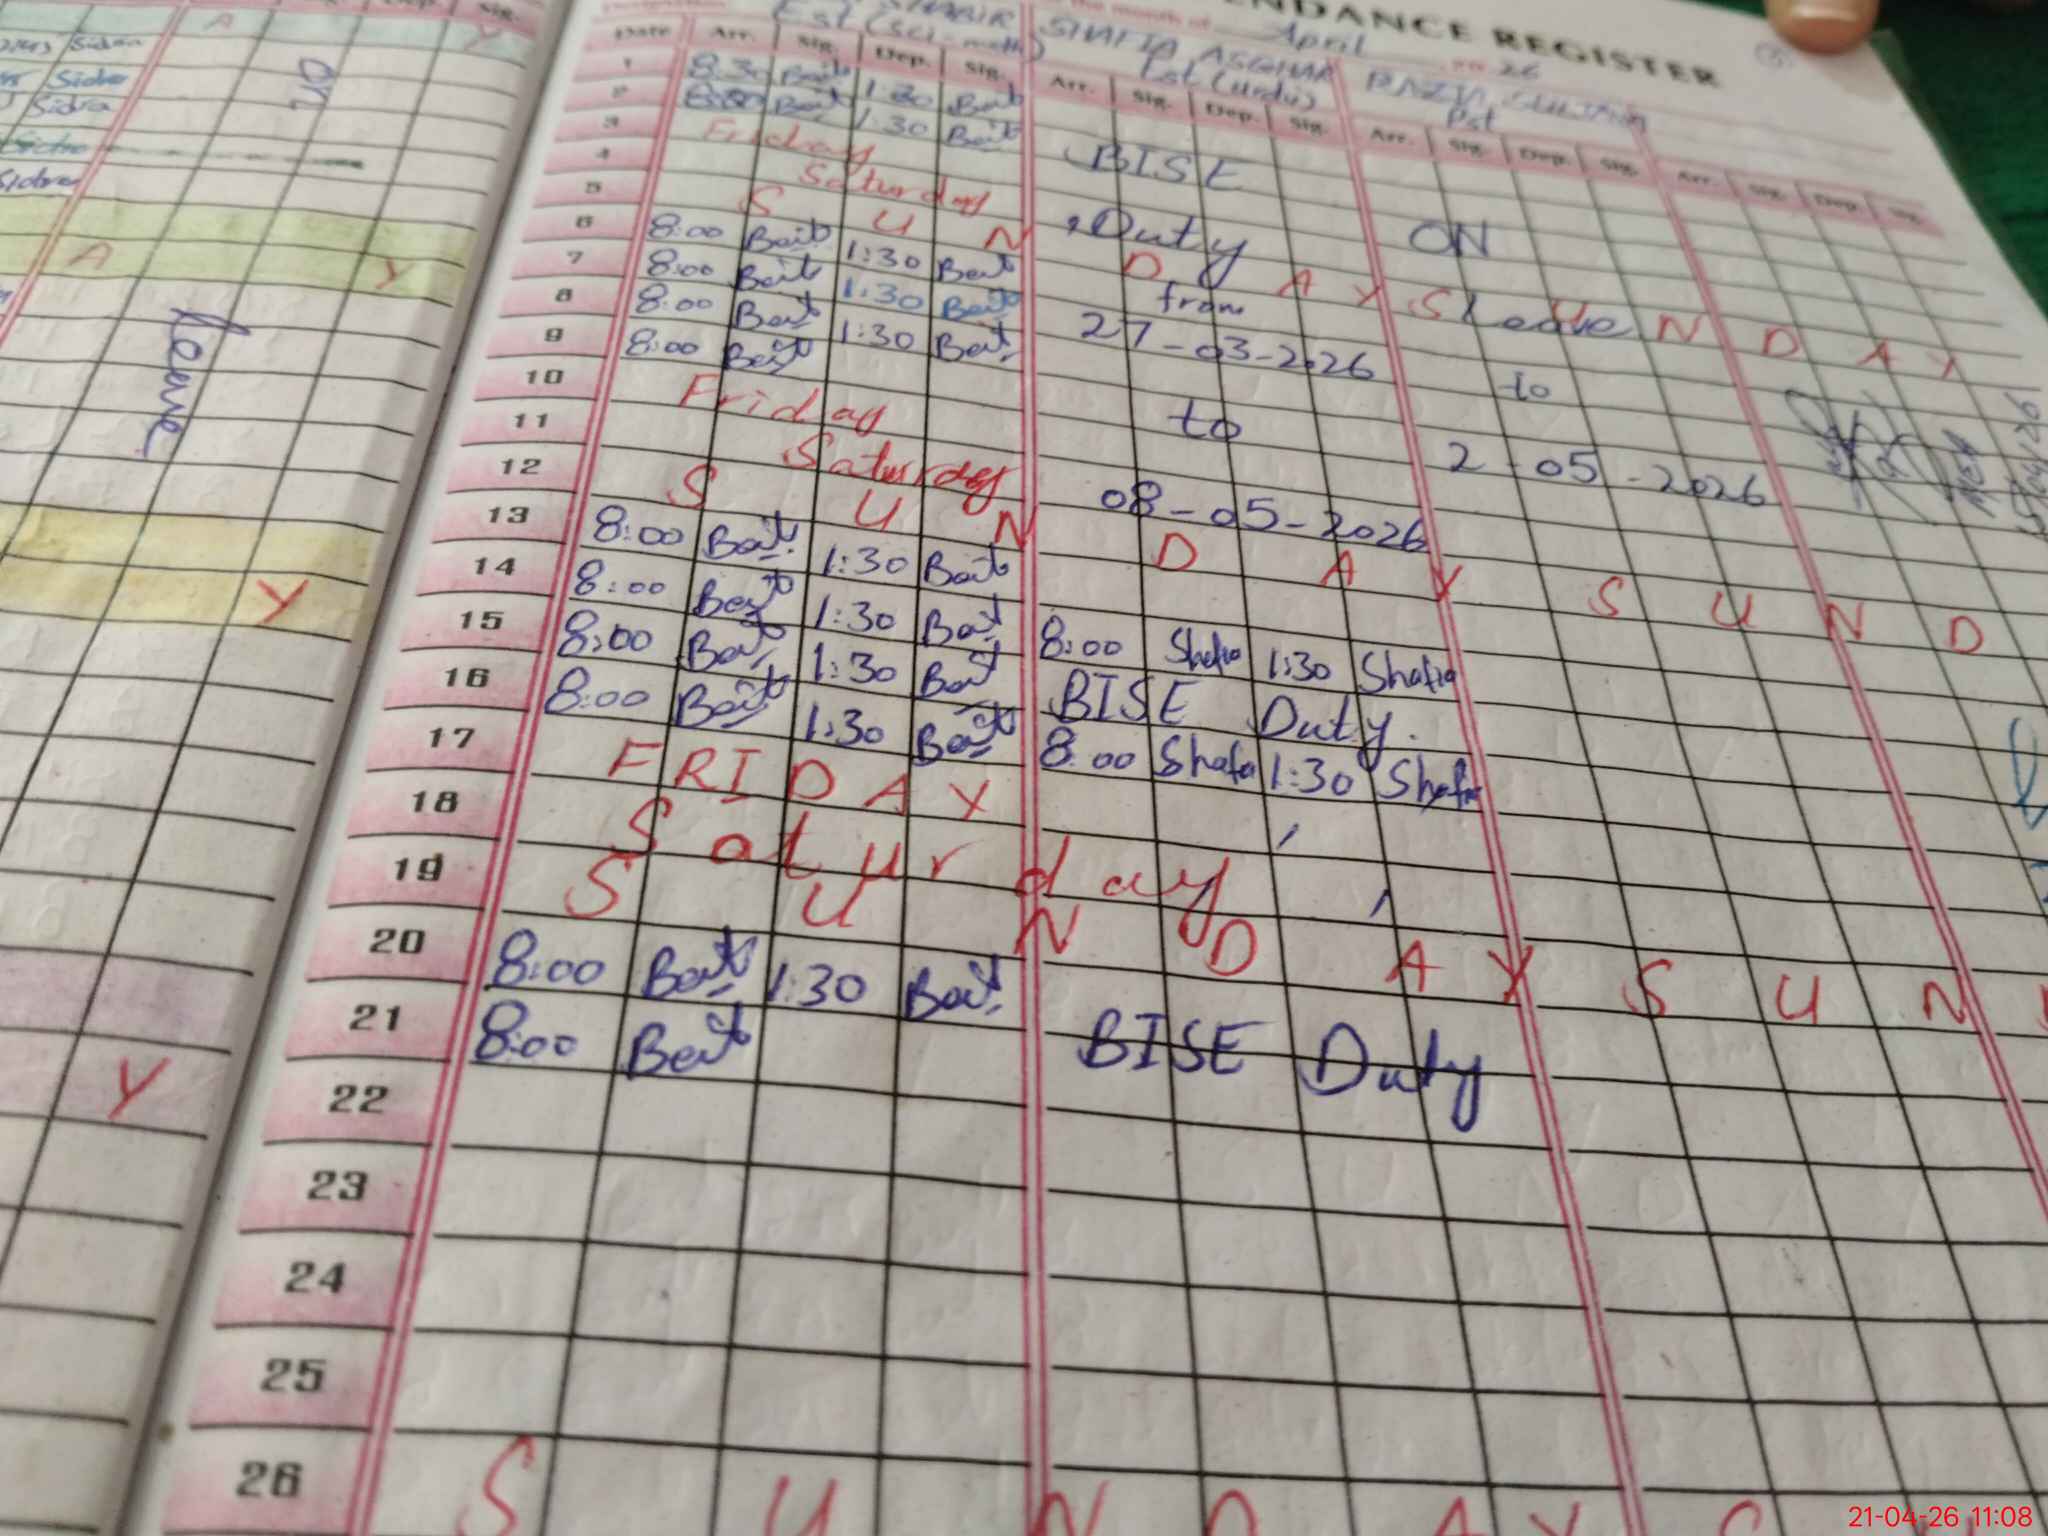 ATTENDANCE REGISTER
the month of April 26
SHAFIA ASGHAR
Est (Sci-math) Est (urdu) Pst
Date Arr. Sig. Dep. Sig. Arr. Sig. Dep. Sig. Arr. Sig. Dep. Sig. Arr. Sig. Dep. Sig.
1 8:30 Bait 1:30 Bait
2 Bait 1:30 Bait
3 Friday
4 Saturday BISE
5 S U N D A Y S U N D A Y
6 8:00 Bait 1:30 Bait Duty ON
7 8:00 Bait 1:30 Bait from Leave
8 8:00 Bait 1:30 Bait 27-03-2026 to
9 8:00 Bait
10 Friday to 2-05-2026
11 Saturday 08-05-2026
12 S U N D A Y S U N D
13 8:00 Bait 1:30 Bait
14 8:00 Bait 1:30 Bait 8:00 Shafia 1:30 Shafia
15 8:00 Bait 1:30 Bait BISE Duty.
16 8:00 Bait 1:30 Bait 8:00 Shafia 1:30 Shafia
17 FRIDAY
18 Saturday
19 S U N D A Y S U N
20 8:00 Bait 1:30 Bait
21 8:00 Bait BISE Duty
22
23
24
25
26 S U N D A Y S
Sidra
Sidra
Sidra
Sidra
Sidra
A
Y
on
A
Y
Leave
Y
Y
21-04-26 11:08